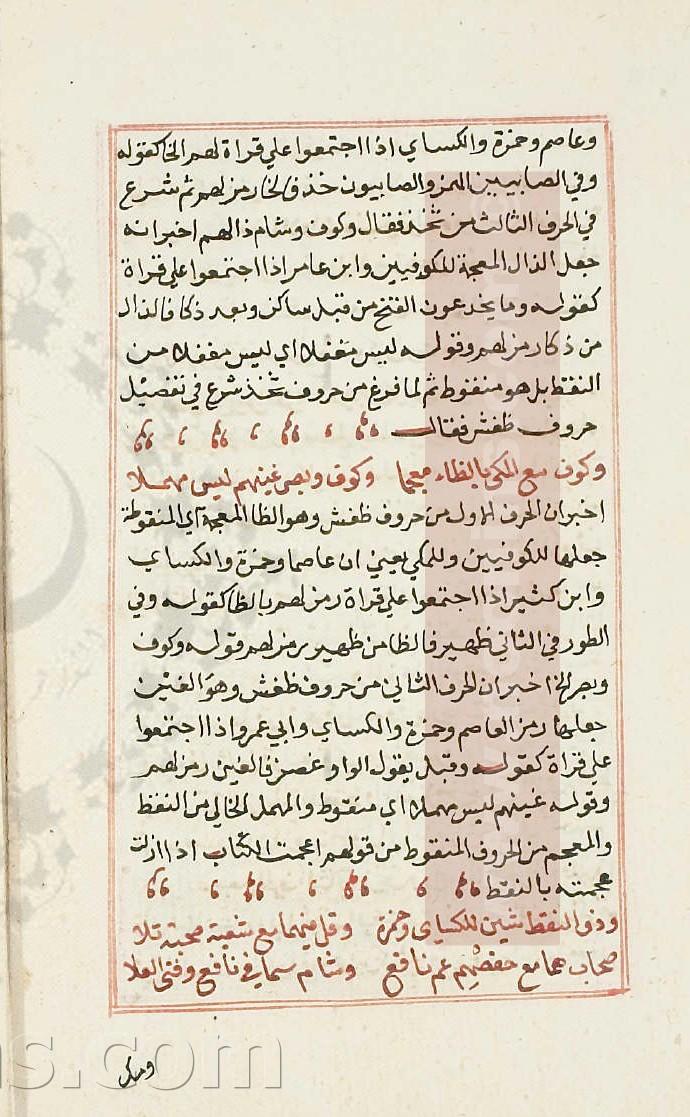 وعاصم وحمزة والكساي اذا اجتمعوا علي قراة لهم الخا كقوله
وفي الصابيين الهمز والصابيون خذ فالخا رمز لهم ثم شرع
في الحرف الثالث من ثخذ فقال وكوف وشام ذالهم اخبر انه
جعل الذال المعجمة للكوفيين وابن عامر اذا اجتمعوا علي قراة
كقوله وما يخدعون الفتح من قبل ساكن وبعد ذكا فالذال
من ذكا رمز لهم وقوله ليس مغفلا اي ليس مغفلا من
النقط بل هو منقوط ثم لما فرغ من حروف ثخذ شرع في تفصيل
حروف ظغش فقال
وكوف مع المكي بالظاء معجما وكوف وبصر غينهم ليس مهملا
اخبر ان الحرف الاول من حروف ظغش وهو الظا المعجمة اي المنقوطة
جعلها للكوفيين وللمكي يعني ان عاصما وحمزة والكساي
وابن كثير اذا اجتمعوا علي قراة رمز لهم بالظا كقوله وفي
الطور في الثاني ظهير فالظا من ظهير رمز لهم قوله وكوف
وبصر الخ اخبر ان الحرف الثاني من حروف ظغش وهو الغين
جعلها رمز العاصم وحمزة والكساي وابي عمرو اذا اجتمعوا
علي قراة كقوله وقبل يقول الواو غصن فالغين رمز لهم
وقوله غينهم ليس مهملا اي منقوط والمهمل الخالي من النقط
والمعجم من الحروف المنقوط من قولهم اعجمت الكتاب اذا ازلت
عجمته بالنقط
وذو النقط شين للكساي وحمزة وقل فيهما مع شعبة صحبة تلا
صحاب هما مع حفصهم عم نافع وشام سما في نافع وفتى العلا
ns.com